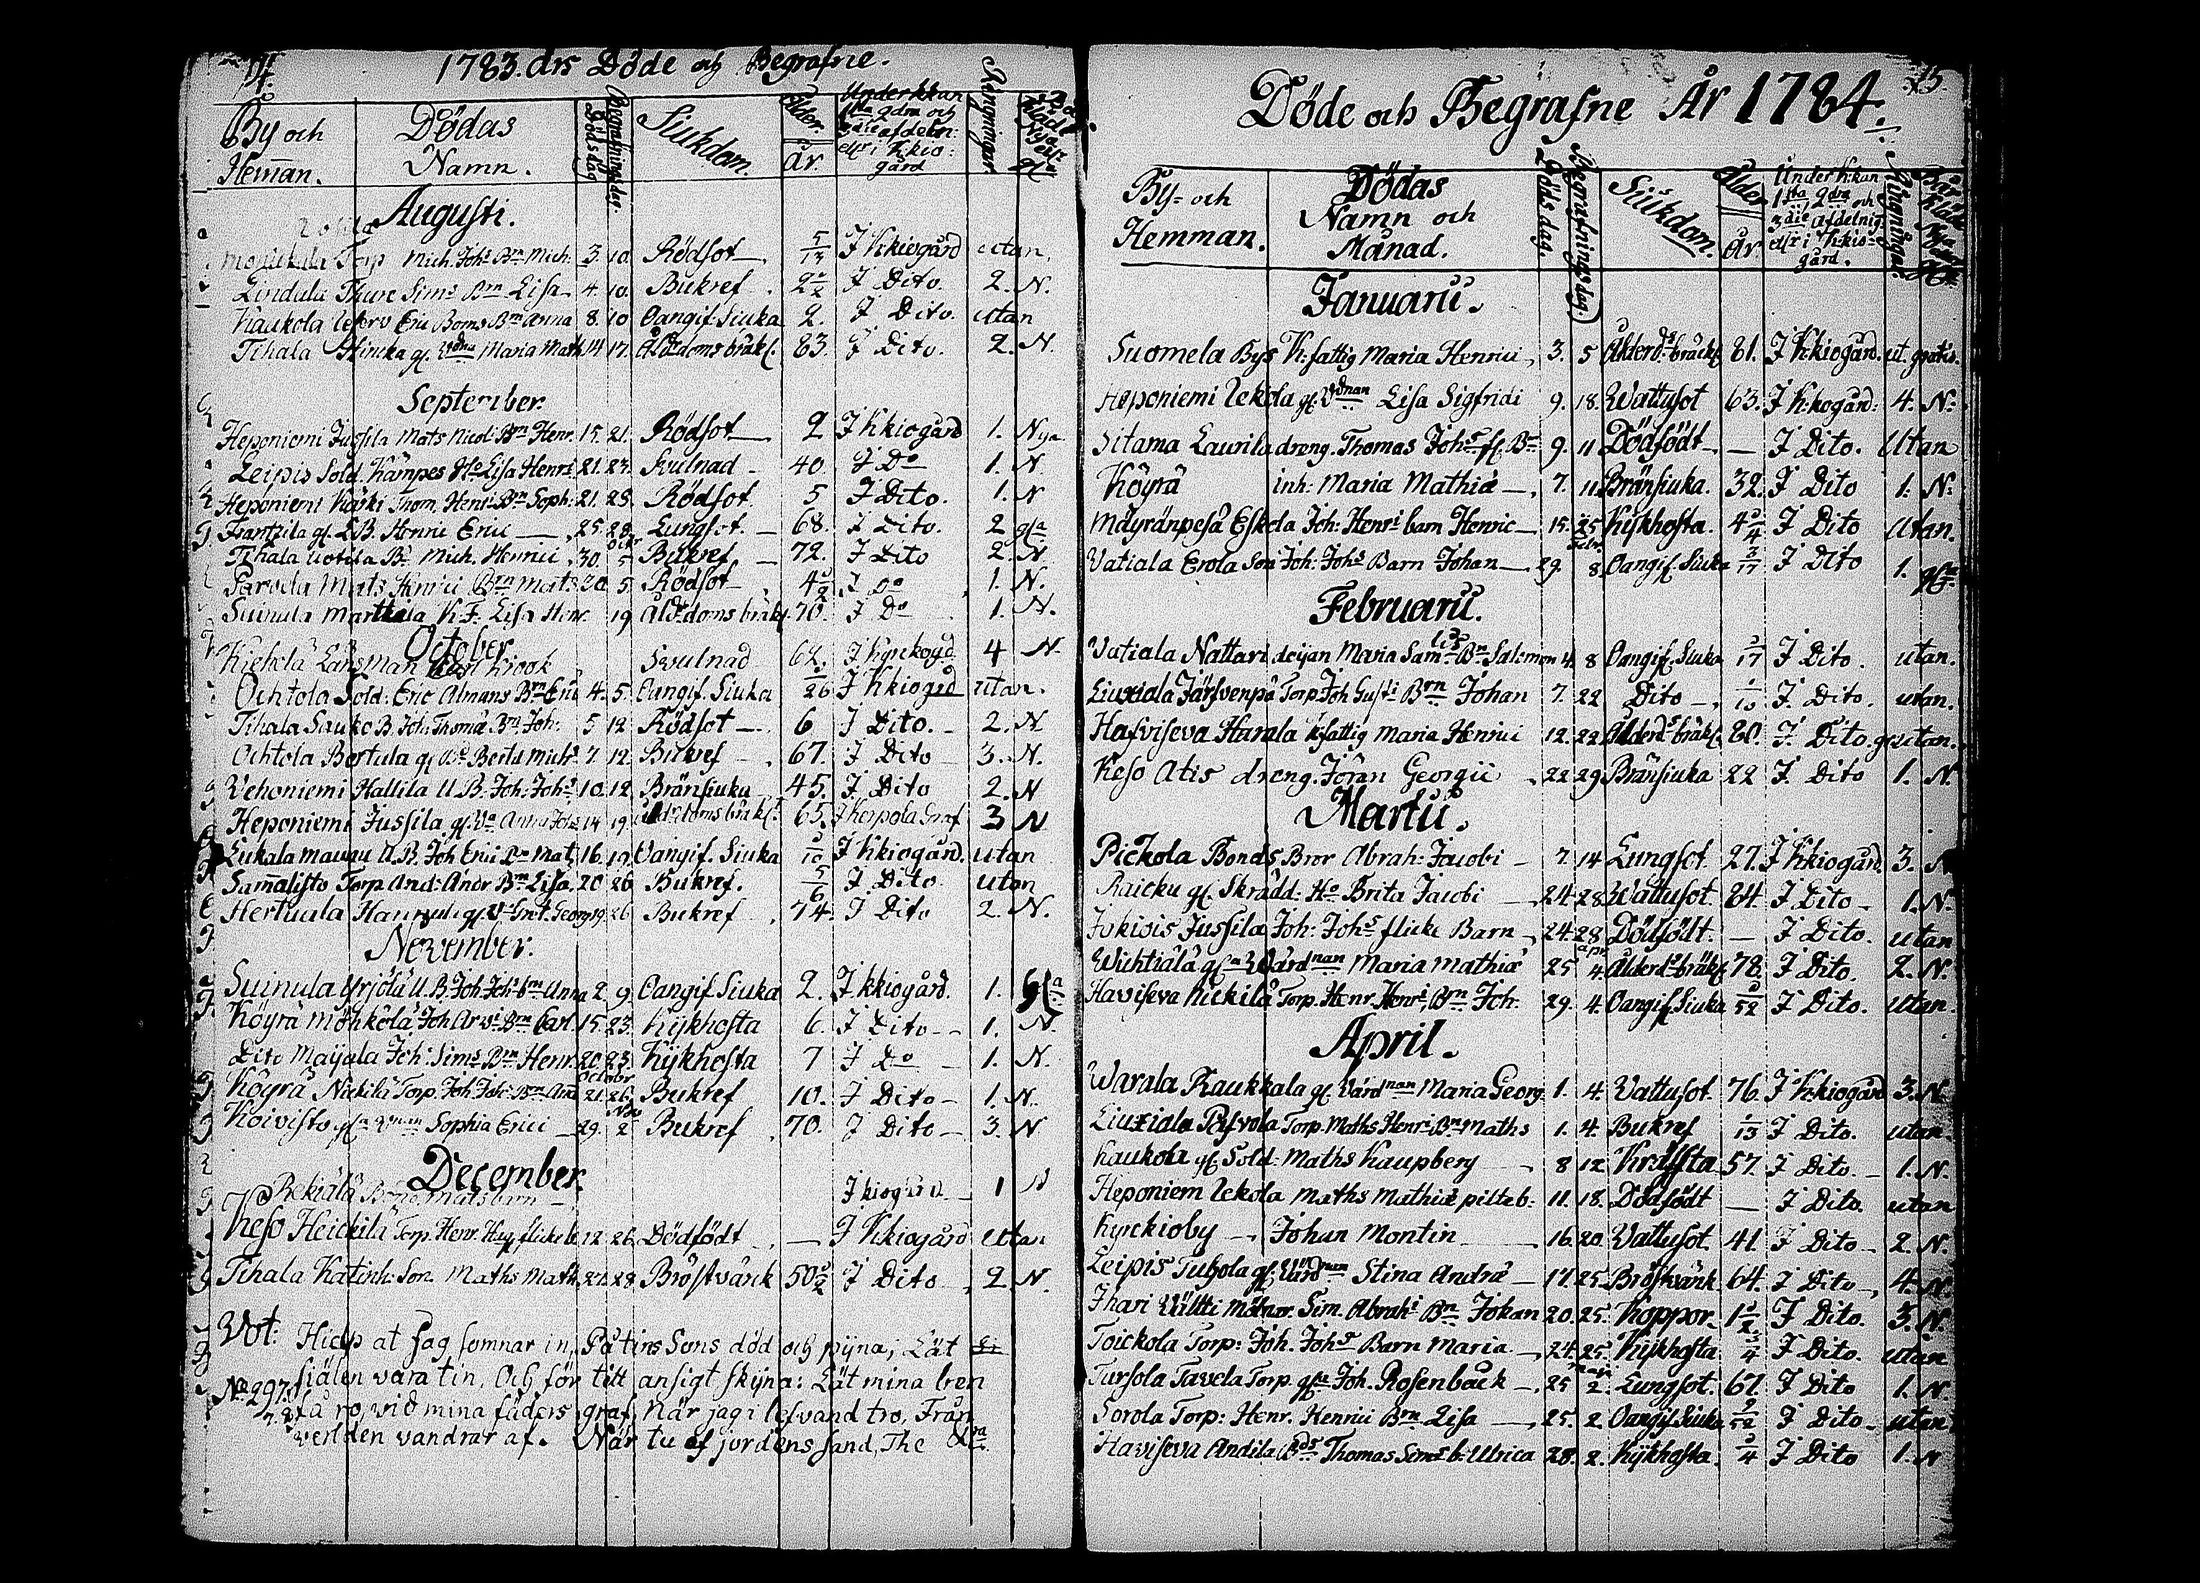 74.
1783. års Döde och Begrafne.
By och Heman. Dödas Namn. Dödsdag Begrafningsdag. Siukdom. Ålder. År. Under kkan 1sta 2dra och 3die afdeln: elr i kkio-gård Ringningar
Augusti.
Torp Mich. Johs Bn Mich. 3. 10. Rödsot 5/13 J kkiogård utan.
Lindula Thure Sims Bn Lisa 4. 10. Bukref. 2 1/2 J Dito. 2. N.
Kaukola Eric Boms Bn Anna 8. 10 Oangif. Siuka 2. J Dito. utan
Tihala Hineka gl. Vdna Maria Math. 14. 17. Ålderdoms bräkl. 83. J Dito. 2. N.
September.
Heponiemi Jussila Mats Nicol. Bn Henr. 15. 21. Rödsot 2 J kkiogård 1. Nya
Leipis Sold. Kämpes Ho Lisa Henri 21. 23. Svulnad 40 J Do 1. N
Heponiemi Käski Thom. Henr. Bn Soph. 21. 28. Rödsot 5 J Dito. 1. N
Frantzila gl. L.B. Henric Erici 25. 28. Lungsot. 68. J Dito. 2 gla
Tihala Uotila Bd Mich. Henrici 30. 5 Bukref 72. J Dito 2. N
Mats Henrici Bn Mats 30. 5. Rödsot 4 1/2 J Do 1. N.
Suinula Marttala K.F. Lisa Henr. 19 Ålderdoms bräkl. 70. J Do 1. N.
October
Kiekola Länsman Carl Krook Svulnad 62. 4 N.
Ochtola Sold. Eric Almans Brn Eric 4. 5. Oangif. Siuka 1/26 J kkiogård utan.
Tihala Sauko B. Joh. Thomæ Bn Joh. 5 12 Rödsot 6 J Dito. 2. N
Ochtola Bertula gl Bertil Michs. 7 12. Bukref 67. J Dito 3. N.
Vehoniemi Hallila U.B. Joh. Johs 10. 12. Bränsiuka 45. J Dito 2. N
Heponiemi Jussila gl. Va Anna Johs 14 19. Ålderdoms bräkl. 65. J Kerpola Graf 3 N
Liukala Maunu U.B. Joh Erici Bn Mat. 16. 19. Oangif. Siuka 1/10 J kkiogård. utan
Samalisto Torp. And. Andr Bn Lisa. 20 26 Bukref. 5/6 J Dito. utan
Hertuala Hannula gl. Va Georg. 19. 26. Bukref 74. J Dito 2. N.
November.
Suinula Yrjölä U.B. Joh. Johs bm Anna 2. 9. Oangif Siuka 2. J kkiogård. 1. gla
Köyrä Möhkölä Joh Arvi Brn Carl. 15. 23. Kijkhosta 6. J Dito 1. N.
Dito Maijala Joh: Sims Brn Henr. 20. 23. Kijkhosta 7 J Do 1. N.
Octobr
Köyrä Nickilä Torp. Joh Johs Bn And 21. 26. Bukref 10. J Dito 1. N.
Koivisto gla Vdnan Sophia Erici 29. 2 Bukref 70. J Dito 3. N
December
Rekiälä Bond. Mats barn J kkiogård 1 N
Keso Heickilä Torp. Henr. Hen. flicke b. 12 26. Dödfödt J kkiogård utan
Tihala Katinh. Son. Maths Math. 27. 28. Bröstvärck 50 1/2 J Dito 2 N.
Vot: Hielp at jag somnar in, På tins Sons död och pijna, Låt
siälen vara tin, Och för titt ansigt skijna: Låt mina ben
No 297. v. 8. få ro, vid mina fäders graf, När jag i lefvand tro, Från
verlden vandrar af. När tu af jordens sand, The &ra
75.
Döde och Begrafne År 1784.
By- och Hemman. Dödas Namn och Månad. Dödsdag. Begrafningsdag. Siukdom. Ålder År Under K:kan 1sta 2dra och 3die afdelnig elr i Kkio-gård. Ringningar.
Januarii.
Suomela Bys K: fattig Maria Henrici 3. 5 Ålderds bräckl. 81. J Kkiogård. ut. gratis.
Heponiemi Uckola gl. Vdnan Lisa Sigfridi 9. 18. Wattusot 63. J K:kogård: 4. N.
Sitama Laurila dreng. Thomas Johs fl. Bn 9. 11 Dödfödt J Dito. Utan
Köyrä inh: Maria Mathiæ 7. 11. Bränsiuka. 32. J Dito 1. N.
Mäyränpeså Eskola Joh: Henrs barn Henric 15. 25 Kijkhosta. 4 3/4 J Dito Utan.
Febr.
Vatiala Erola Son Joh: Johs Barn Johan 29. 8. Oangif. Siuka 3/17 J Dito 1. gla
Februarii.
Vatiala Nattari deijan Maria Sams Bn Salomon 4. 8 Oangif. Siuka 1/17 J Dito. utan.
Liuxiala Järfvenpä Torp. Joh Gusti Brn Johan 7. 22 Dito 1/10 J. Dito. utan.
Hafviseva Harala k:fattig Maria Henrici 12. 22 Ålderds bräkl. 80. J. Dito. gr. utan.
Keso Atis dreng. Jöran Georgii 22 29 Bränsiuka 22 J. Dito 1. N
Martii.
Pickola Bonds Bror Abrah: Jacobi 7. 14 Lungsot. 27. J Kkiogård. 3. N
Raicku gl. Skrädd: Ho Brita Jacobi 24. 28 Wattusot. 84. J Dito 1. N.
Jokiois Jussila Joh: Johs flicke Barn 24. 28 Dödfödt. J Dito. utan
apr.
Wichtiälä gla Wårdnan Maria Mathiæ 25 4. Ålderds bräkl. 78. J Dito. 2. N.
Haviseva Nickilä Torp. Henr. Henrs. Brn Joh. 29. 4. Oangif Siuka 3/52 J Dito. utan.
April.
Warala Raukkala gl. Vårdnan Maria Georg 1. 4. Vattusot. 76. J Kkiogård 3. N
Liuxiala Påfvola Torp. Maths Henri Bn Maths 1. 4. Bukref 1/13 J Dito. utan.
Kaukola gl. Sold: Maths Kaupberg 8 12 Kräfsta 57. J Dito 1. N.
Heponiem Uekola Maths Mathiæ pilteb: 11. 18. Dödfödt J Dito. utan
Kyrckioby Johan Montin 16. 20. Vattusot. 41. J Dito 2. N.
Leipis Tulola gl. Vårdnan Stina Andræ 17. 25. Bröstvärk 64. J Dito 4. N.
Ihari Sim. Abrahs Bn Johan 20. 25. Koppor 1 1/2 J Dito. 3. N.
Toickola Torp: Joh. Johs Barn Maria 24. 25. Kijkhosta 3/4 J Dito. utan
Maji
Tursola Tavela Torp. gla Joh. Rosenbäck 25 2. Lungsot. 67. J Dito 1. N.
Sorola Torp: Henr. Henrici Brn Lisa 25. 2. Oangif Siuka 2/52 J Dito utan
Haviseva Andila Bds Thomas Sims b: Ulrica 28. 2. Kijkhosta. 3/4 J Dito 1. N